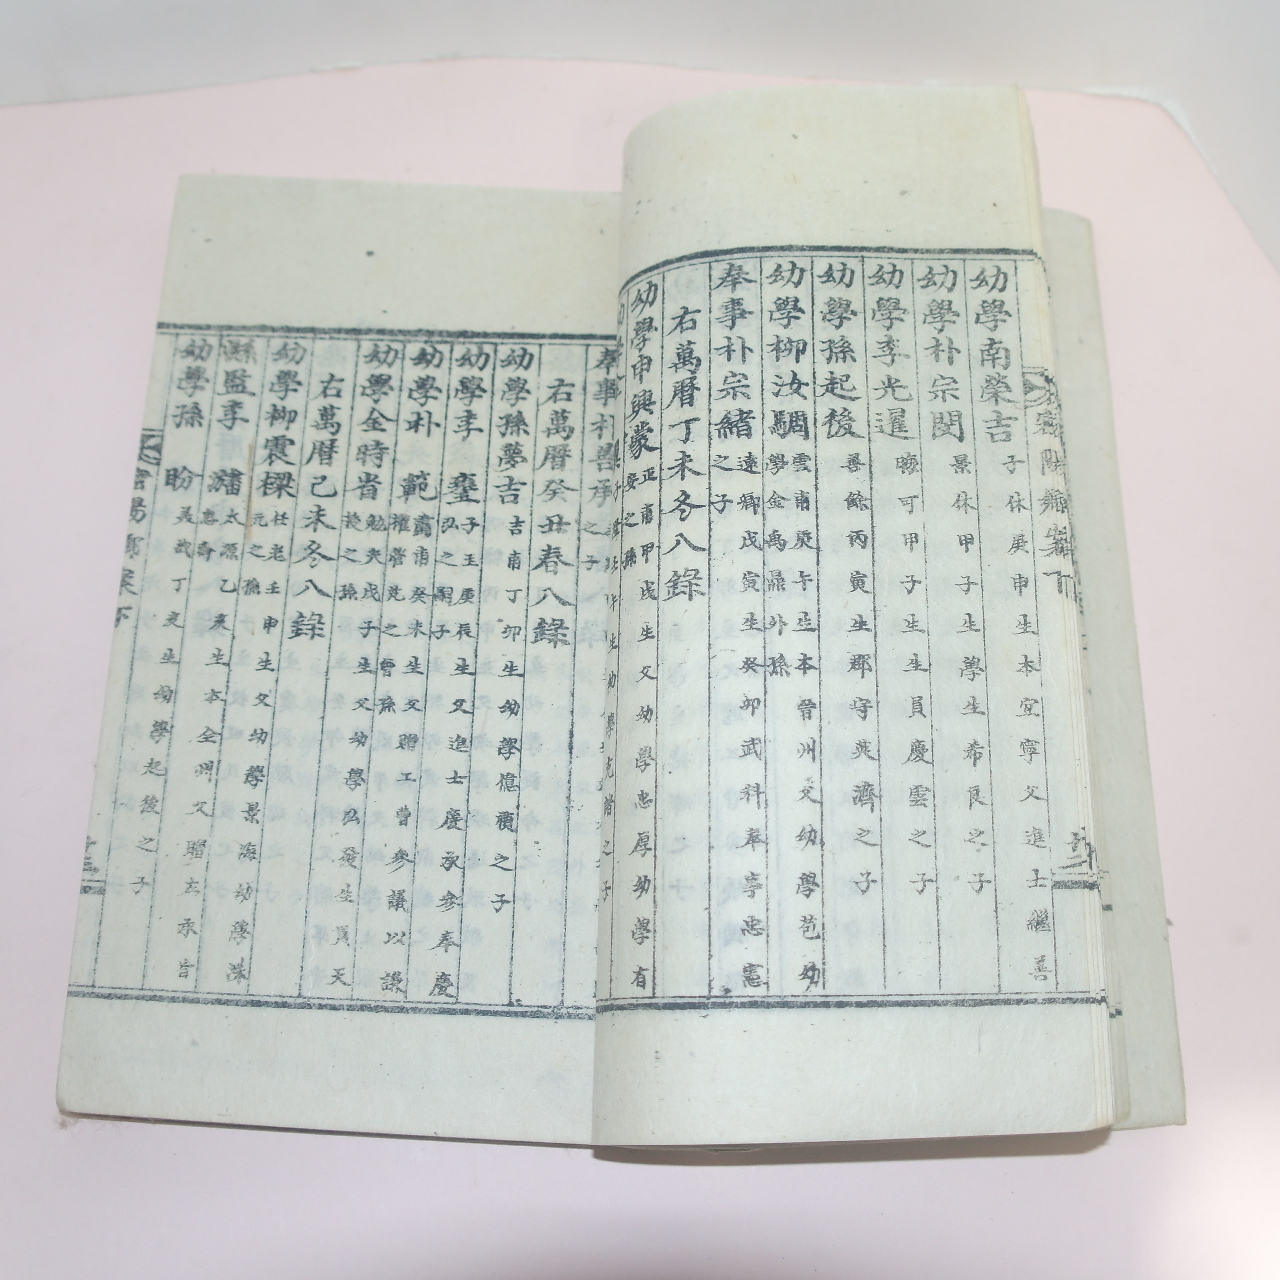 幼學南榮吉 子休庚申生本宜寧父進士繼善
幼學朴宗閔 景休甲子生學生希良之子
幼學李光暹 可甲子生生員慶雲之子
幼學孫起後 善餘丙寅生郡守英濟之子
幼學柳汝騆 雲甫庚午生本晉州父幼學苞幼
學金禹鼎外孫
奉事朴宗緒 遠卿戊寅生癸卯武科奉事忠憲
之子
右萬曆丁未冬八錄
幼學申興蒙 正甫甲戌生父幼學忠厚幼學有
安之孫
奉事朴善承
之子
右萬曆癸丑春八錄
幼學孫夢吉 吉甫丁卯生幼學億禎之子
幼學李 子玉庚辰生父進士慶承參奉慶
弘之嗣子
幼學朴範 甫癸未生父贈工曹參議以謙
權管苑之曾孫
幼學金時省 勉夫戌子生父幼學弘發生員天
之孫
右萬曆己未冬八錄
幼學柳震樑 任老壬申生父幼學景海幼學洙
元之孫
縣監李 太源乙未生本全州父贈左承旨
惠
幼學孫盼 美哉丁亥生幼學起後之子
案下